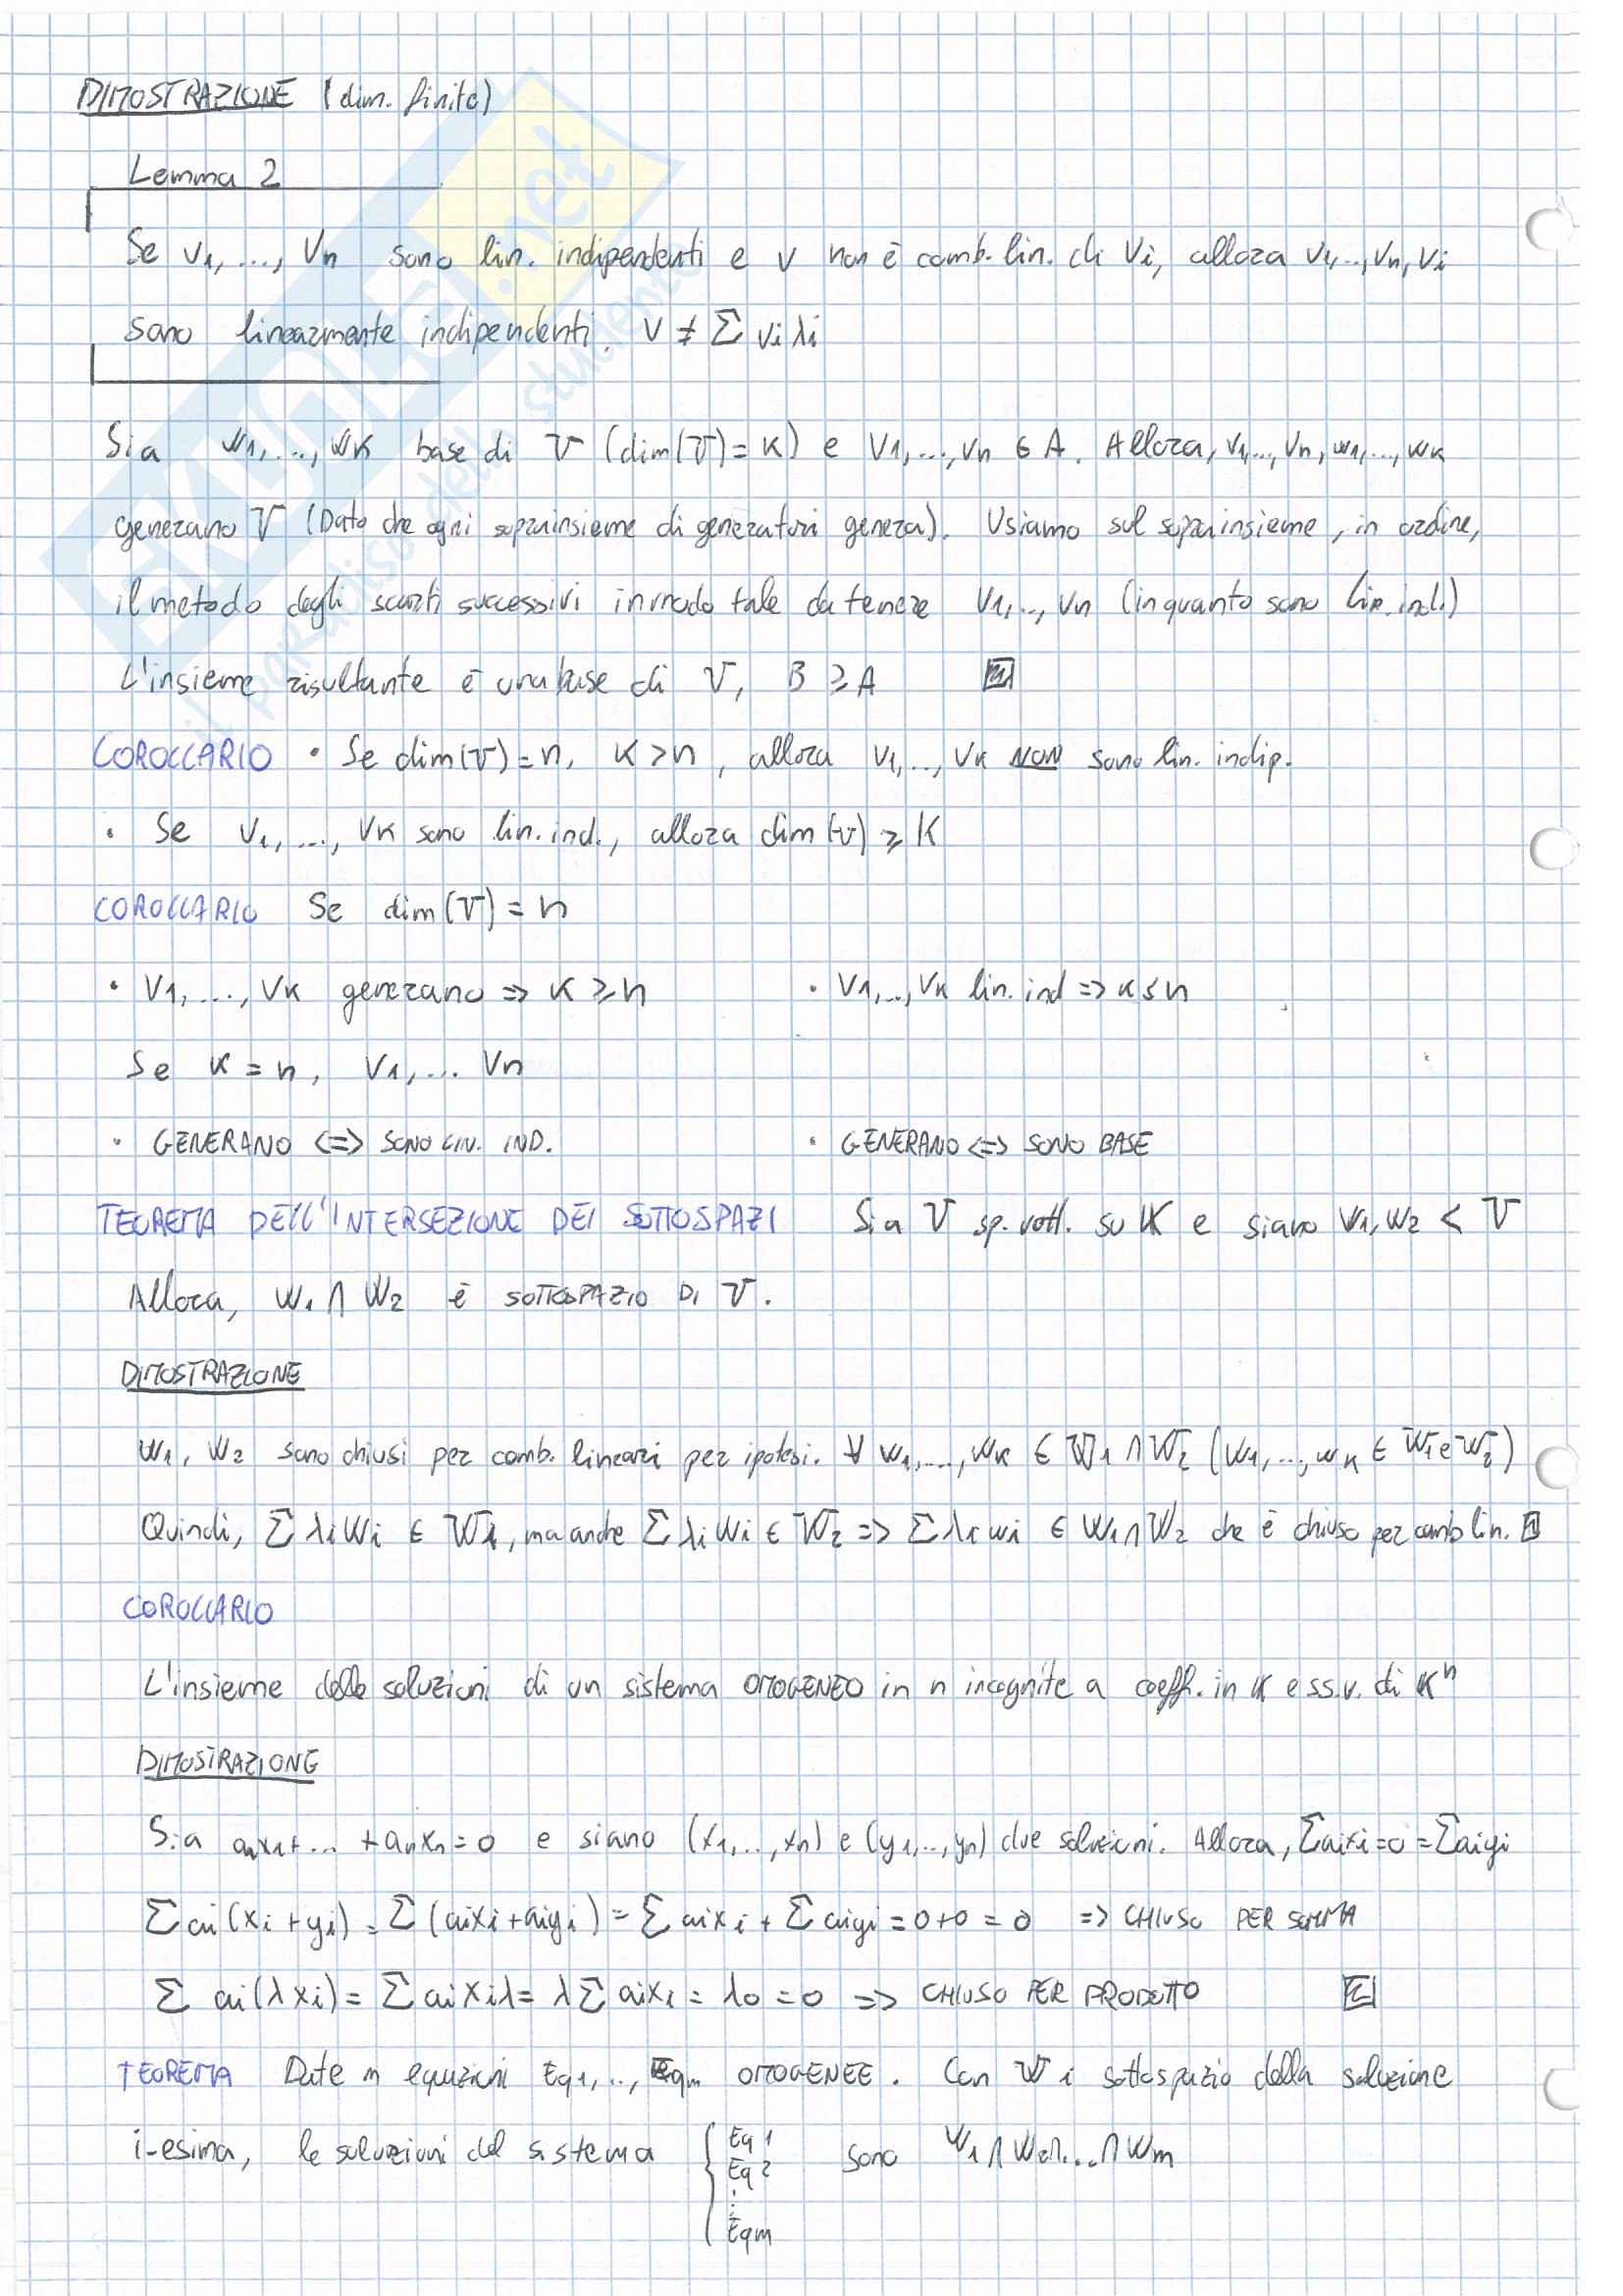 DIMOSTRAZIONE (dim. finita)
Lemma 2
Se v1, ..., vn sono lin. indipendenti e v non è comb. lin. di vi, allora v1,..,vn, vi
sono linearmente indipendenti. v ≠ Σ vi λi
Sia w1, ..., wK base di V (dim(V) = K) e v1, ..., vn ∈ A. Allora, v1, ..., vn, w1, ..., wK
generano V (Dato che ogni soprainsieme di generatori genera). Usiamo sul soprainsieme, in ordine,
il metodo degli scarti successivi in modo tale da tenere v1, .., vn (in quanto sono lin. ind.)
L'insieme risultante è una base di V, B ⩾ A
COROLLARIO • Se dim(V) = n, K > n, allora v1, .., vK NON sono lin. indip.
• Se v1, ..., vK sono lin. ind., allora dim(V) ⩾ K
COROLLARIO Se dim(V) = n
• v1, ..., vK generano => K ⩾ n • v1, .., vK lin. ind => K ≤ n
Se K = n, v1, ... vn
• GENERANO <=> SONO LIN. IND. • GENERANO <=> SONO BASE
TEOREMA DELL'INTERSEZIONE DEI SOTTOSPAZI Sia V sp. vett. su K e siano W1, W2 < V
Allora, W1 ∩ W2 è SOTTOSPAZIO DI V.
DIMOSTRAZIONE
W1, W2 sono chiusi per comb. lineari per ipotesi. ∀ w1, ..., wK ∈ W1 ∩ W2 (w1, .., wK ∈ W1 e W2)
Quindi, Σ λi wi ∈ W1, ma anche Σ λi wi ∈ W2 => Σ λi wi ∈ W1 ∩ W2 che è chiuso per comb lin.
COROLLARIO
L'insieme delle soluzioni di un sistema OMOGENEO in n incognite a coeff. in K è ss.v. di K^n
DIMOSTRAZIONE
Sia a1x1+... +anxn = 0 e siano (x1, .., xn) e (y1, .., yn) due soluzioni. Allora, Σaixi = 0 = Σaiyi
Σ ai(xi + yi) = Σ (aixi + aiyi) = Σ aixi + Σ aiyi = 0+0 = 0 => CHIUSO PER SOMMA
Σ ai(λxi) = Σ aixiλ = λ Σ aixi = λ0 = 0 => CHIUSO PER PRODOTTO
TEOREMA Date m equazioni Eq1, .., Eqm OMOGENEE. Con Wi sottospazio della soluzione
i-esima, le soluzioni del sistema { Eq 1 sono W1 ∩ W2 ∩ ... ∩ Wm
Eq 2
⋮
Eqm
SKUOLA.net
il paradiso dello studente